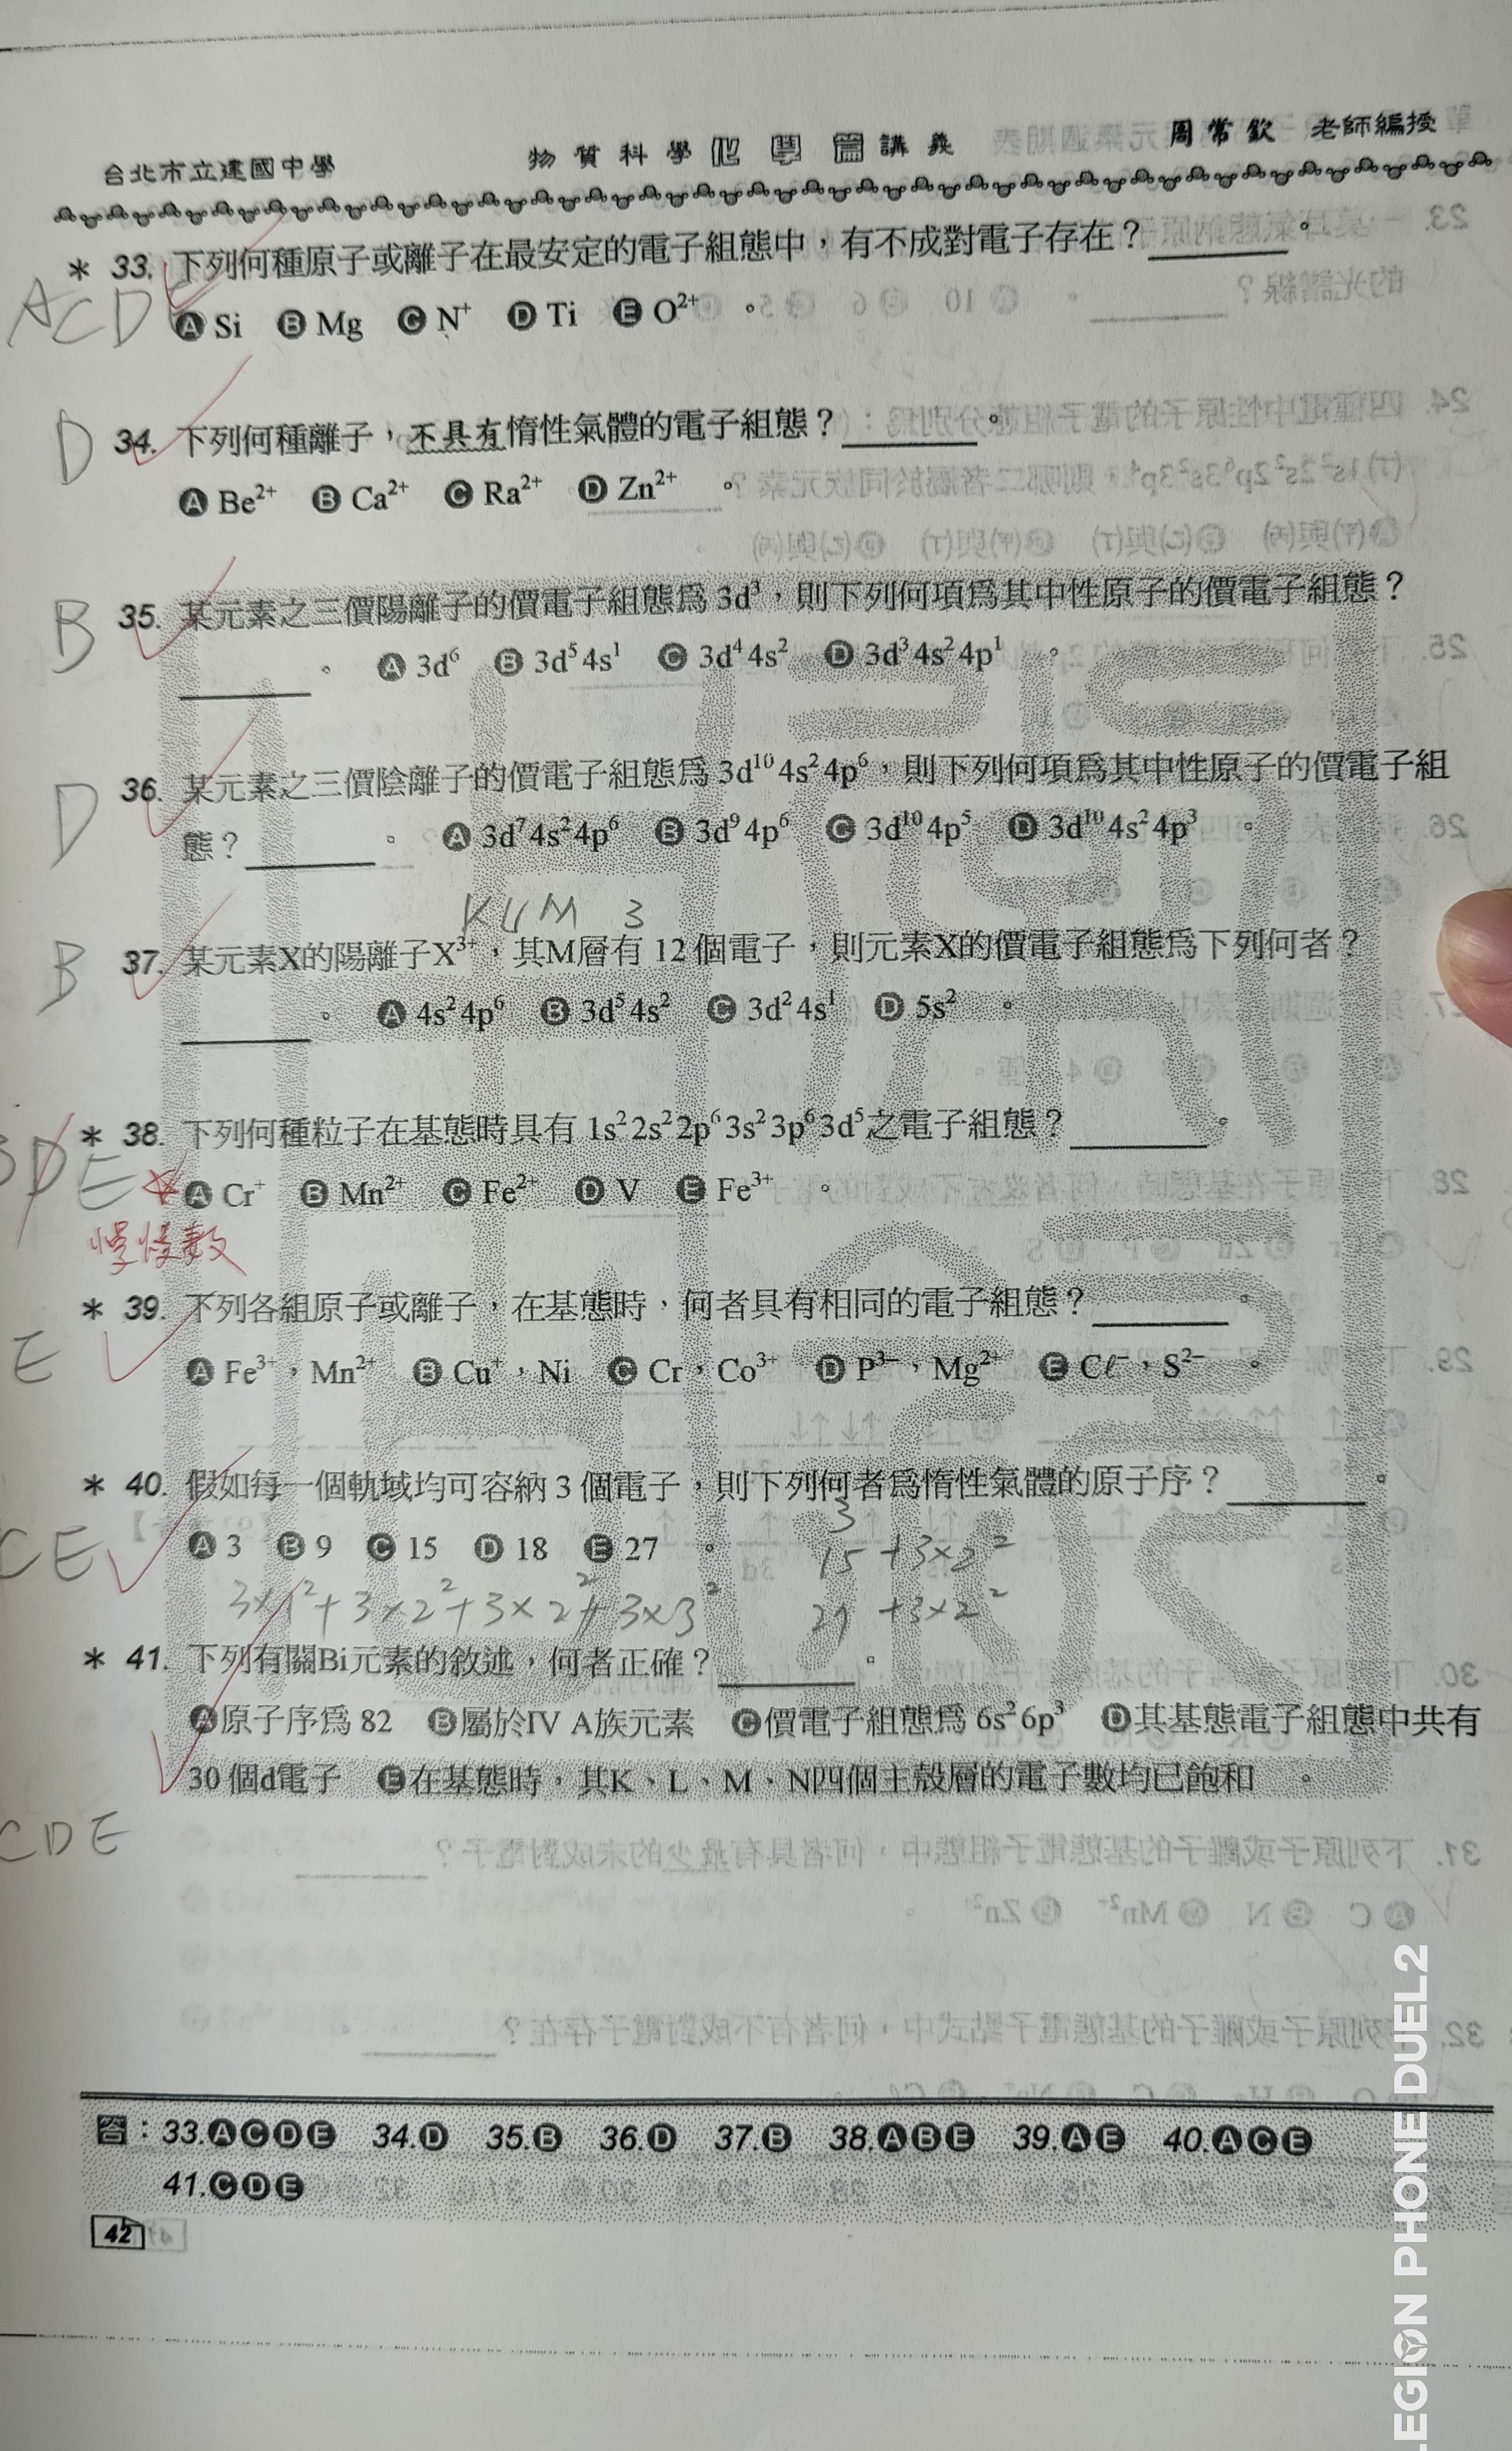 台北市立建國中學 物質科學化學篇講義 周常欽 老師編授
* 33. 下列何種原子或離子在最安定的電子組態中，有不成對電子存在？________。
ACDE
Ⓐ Si Ⓑ Mg Ⓒ N⁺ Ⓓ Ti Ⓔ O²⁺ 。
D 34. 下列何種離子，不具有惰性氣體的電子組態？________。
Ⓐ Be²⁺ Ⓑ Ca²⁺ Ⓒ Ra²⁺ Ⓓ Zn²⁺ 。
B 35. 某元素之三價陽離子的價電子組態爲 3d³，則下列何項爲其中性原子的價電子組態？
________。 Ⓐ 3d⁶ Ⓑ 3d⁵4s¹ Ⓒ 3d⁴4s² Ⓓ 3d³4s²4p¹ 。
D 36. 某元素之三價陰離子的價電子組態爲 3d¹⁰4s²4p⁶，則下列何項爲其中性原子的價電子組
態？________。 Ⓐ 3d⁷4s²4p⁶ Ⓑ 3d⁹4p⁶ Ⓒ 3d¹⁰4p⁵ Ⓓ 3d¹⁰4s²4p³ 。
KLM 3
B 37. 某元素X的陽離子X³⁺，其M層有 12 個電子，則元素X的價電子組態爲下列何者？
________。 Ⓐ 4s²4p⁶ Ⓑ 3d⁵4s² Ⓒ 3d²4s¹ Ⓓ 5s² 。
* 38. 下列何種粒子在基態時具有 1s²2s²2p⁶3s²3p⁶3d⁵之電子組態？________。
BDE
Ⓐ Cr⁺ Ⓑ Mn²⁺ Ⓒ Fe²⁺ Ⓓ V Ⓔ Fe³⁺ 。
慢慢數
* 39. 下列各組原子或離子，在基態時，何者具有相同的電子組態？________。
E
Ⓐ Fe³⁺，Mn²⁺ Ⓑ Cu⁺，Ni Ⓒ Cr，Co³⁺ Ⓓ P³⁻，Mg²⁺ Ⓔ Cℓ⁻，S²⁻ 。
* 40. 假如每一個軌域均可容納 3 個電子，則下列何者爲惰性氣體的原子序？________。
CE
Ⓐ 3 Ⓑ 9 Ⓒ 15 Ⓓ 18 Ⓔ 27 。
3
15 +3×2²
3×1²+3×2²+3×2²+3×3²
27 +3×2²
* 41. 下列有關Bi元素的敘述，何者正確？________。
Ⓐ原子序爲 82 Ⓑ屬於IV A族元素 Ⓒ價電子組態爲 6s²6p³ Ⓓ其基態電子組態中共有
30 個d電子 Ⓔ在基態時，其K、L、M、N四個主殼層的電子數均已飽和 。
CDE
答：33.ⒶⒸⒹⒺ 34.Ⓓ 35.Ⓑ 36.Ⓓ 37.Ⓑ 38.ⒶⒷⒺ 39.ⒶⒺ 40.ⒶⒸⒺ
41.ⒸⒹⒺ
42
LEGION PHONE DUEL2